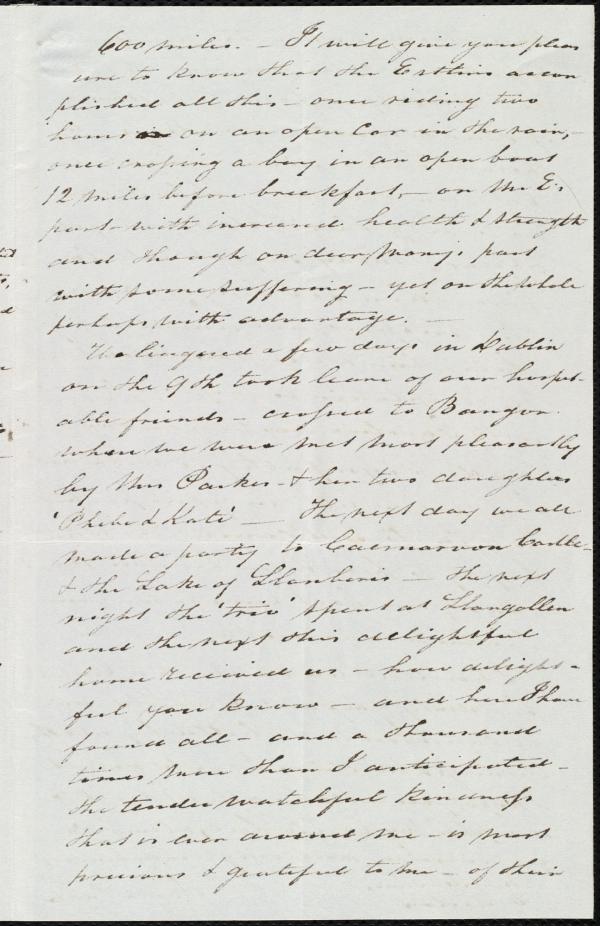 600 miles. — It will give you pleas
ure to know that the Estlins accom
plished all this — once riding two
hours on an open Car in the rain, —
once crossing a bay in an open boat
12 miles before breakfast, — on Mr E.s
part — with increased health & strength
and though on dear Mary's part
with some suffering — yet on the whole
perhaps with advantage. —
We lingered a few days in Dublin
on the 9th took leave of our hospit-
able friends — crossed to Bangor
where we were met most pleasantly
by Mrs Parker & her two daughters
'Phebe & Kate' — The next day we all
made a party to Caernarvon Castle —
& the Lake of Llanberis — the next
night the 'trio' spent at Llangollen
and the next this delightful
home received us — how delight-
ful you know — and here I have
found all — and a thousand
times more than I anticipated —
the tender watchful kindness
that is ever around me — is most
precious & grateful to me — of their